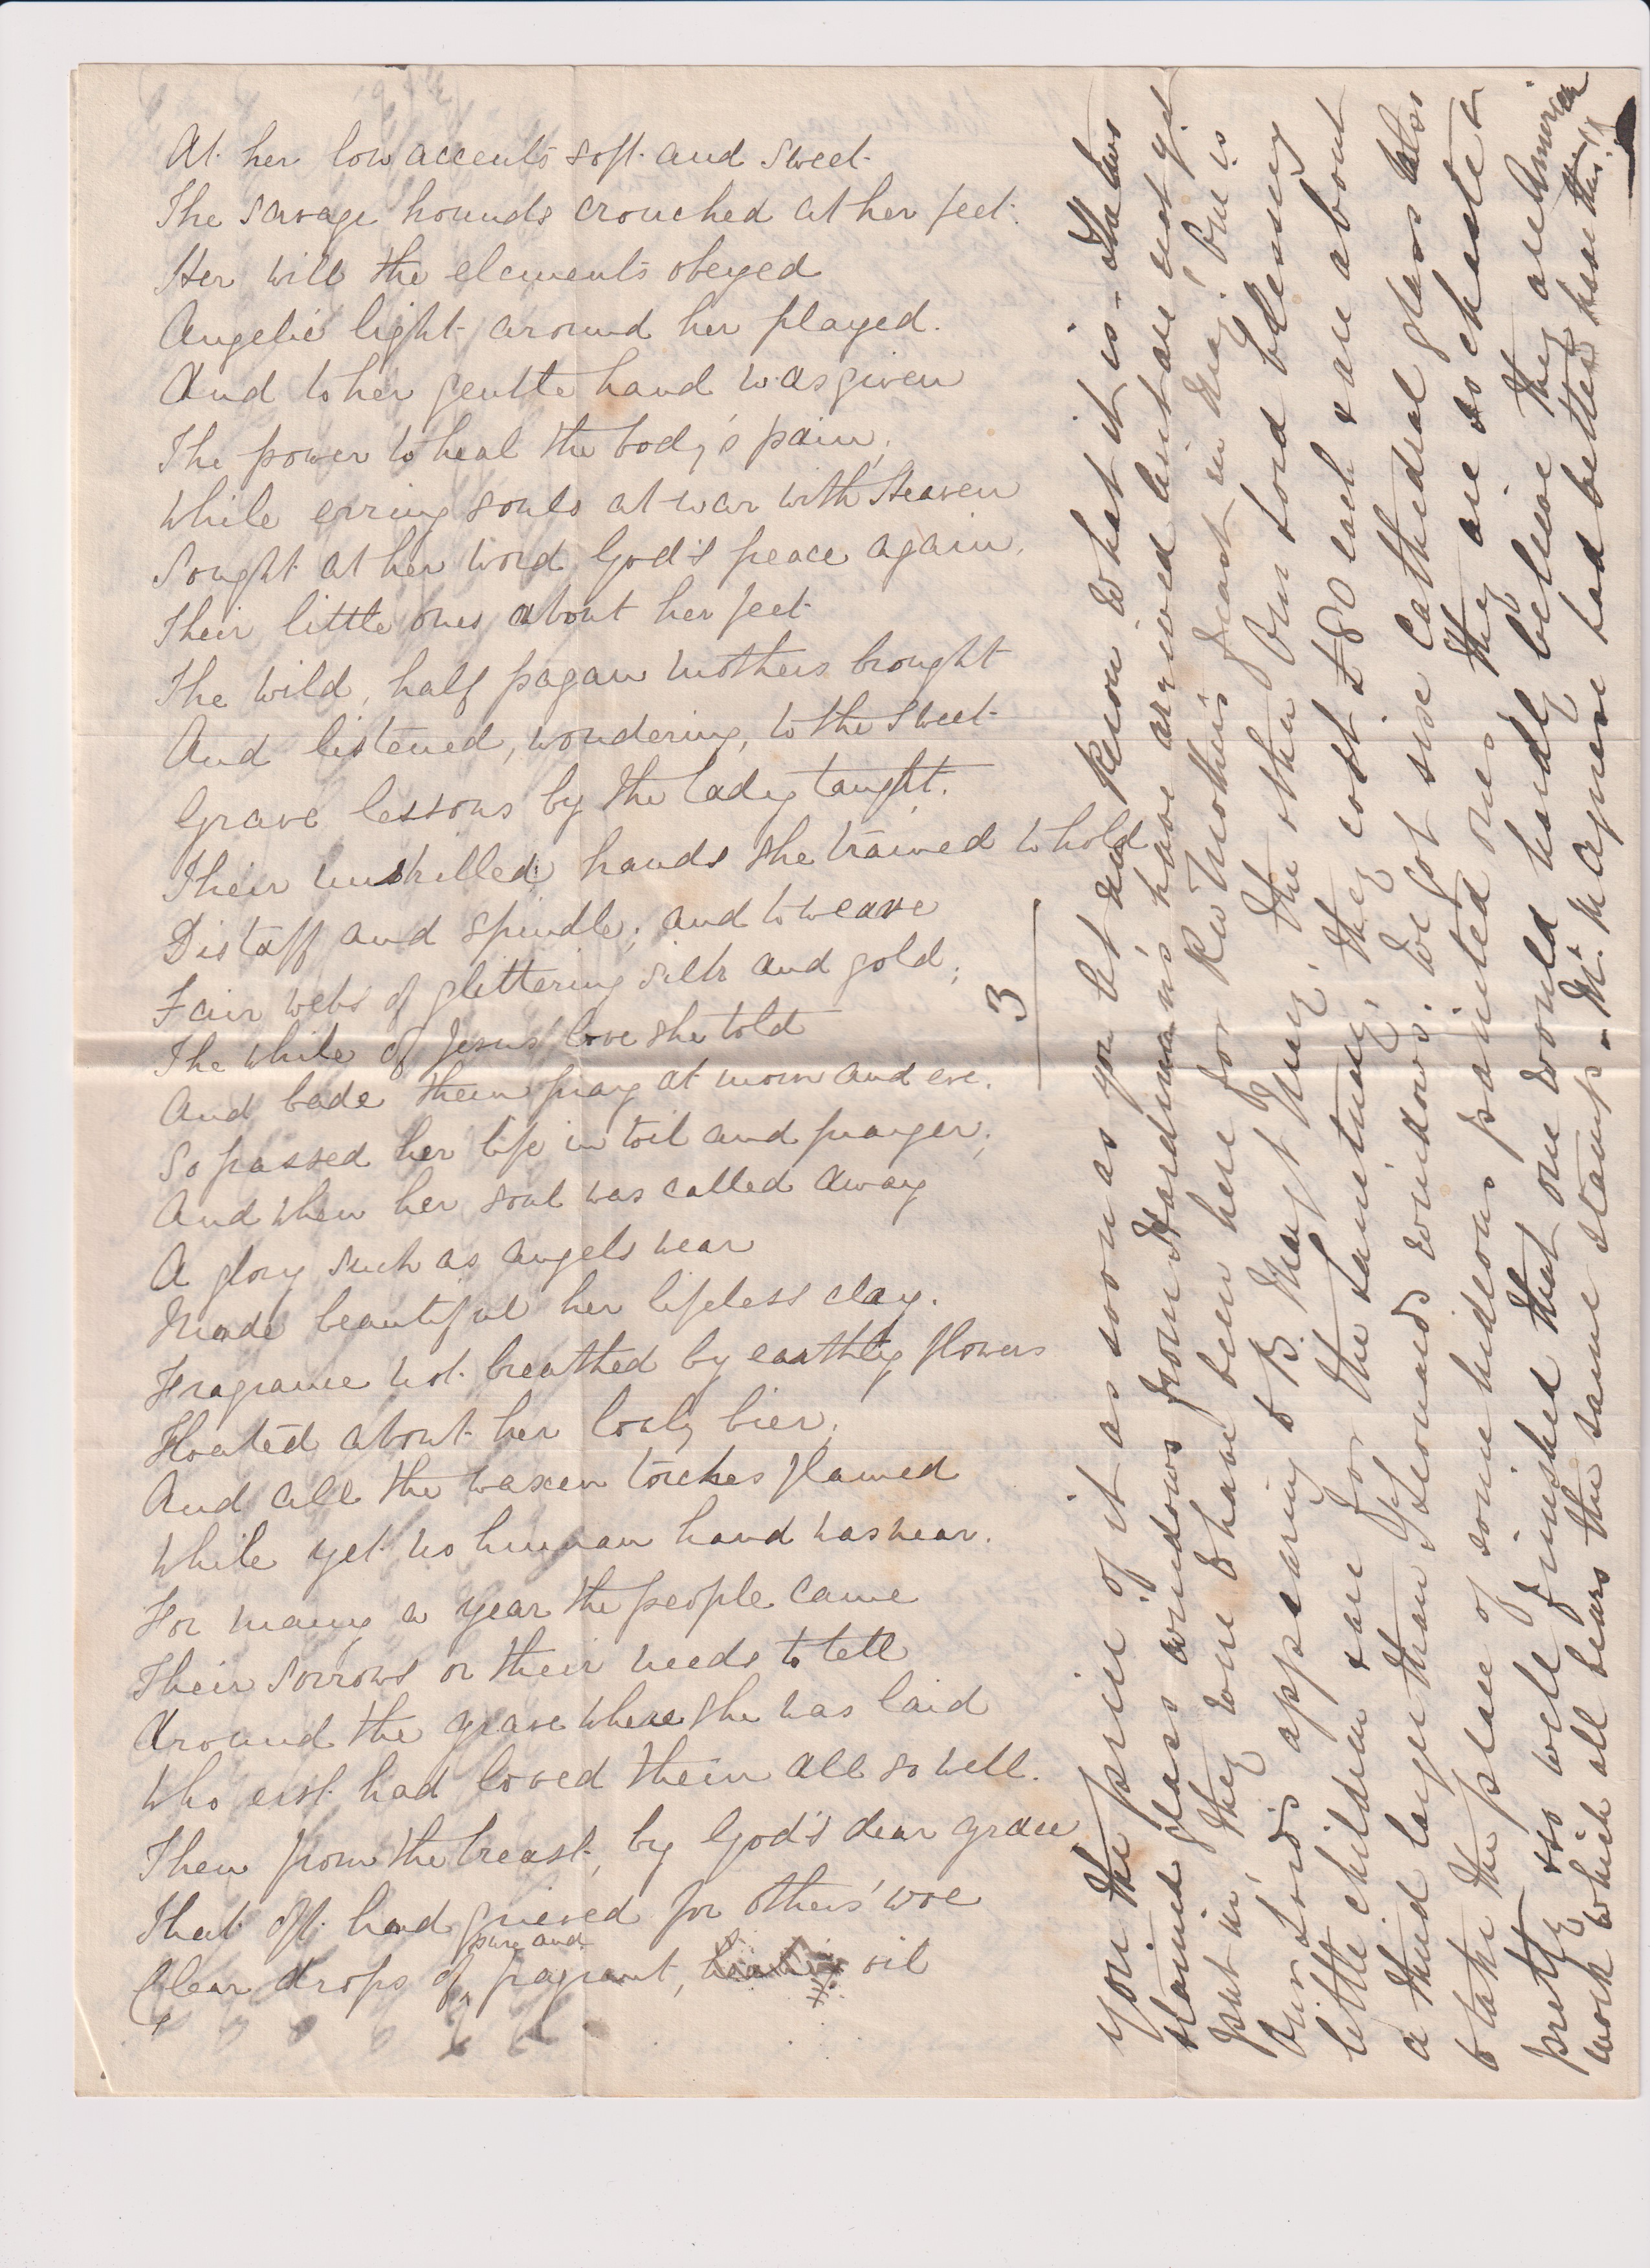 At her low accents soft and sweet
The savage hounds crouched at her feet.
Her will the elements obeyed
Angelic light around her played.
And to her gentle hand was given
The power to heal the body's pain,
While erring souls at war with Heaven
Sought at her word God's peace again.
Their little ones about her feet
The wild, half pagan mothers brought
And listened, wondering, to the sweet
Grave lessons by the lady taught.
Their unskilled hands she trained to hold
Distaff and spindle; and to weave
Fair webs of glittering silk and gold;
The while of Jesus' love she told
And bade them pray at morn and eve.
So passed her life in toil and prayer;
And when her soul was called away
A glory such as angels wear
Made beautiful her lifeless clay.
Fragrance not breathed by earthly flowers
Floated about her lowly bier;
And all the waxen torches flamed
While yet no human hand was near.
For many a year the people came
Their sorrows or their needs to tell
Around the grave where she was laid
Who erst had loved them all so well.
Then from the breast, by God's dear grace
That oft had grieved for others' woe
pure and
Clear drops of fragrant, oil
3
you the price of it as soon as you let me know what it is - The two
stained glass windows from Hardman's have arrived but are not yet
put in, they wou'd have been here for Rev Mother's feast in May, one is
Our Lord's appearing to B. Margt Mary, the other Our Lord blessing
little children & are for the sanctuary, they cost £80 each & are about
a third larger than Yeomands windows. We got six Cathedral glass also
to take the place of some hideous painted ones they are so chaste &
pretty & so well finished that one would hardly believe they are American
work which all bears the same stamp - Mr McAgnese had better hear this!!